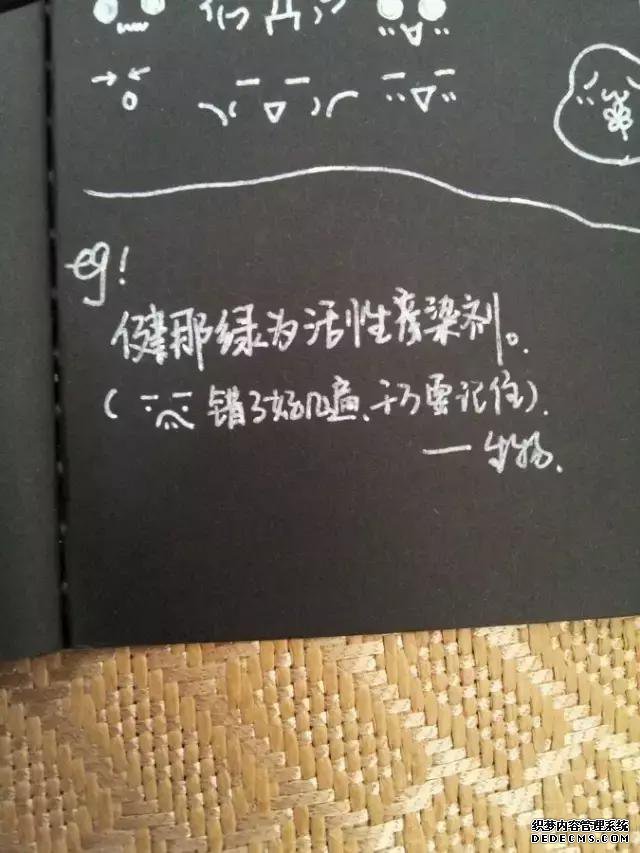 eg!
健那绿为活性染剂。
(错了好几遍、千万要记住).
—生物.
织梦内容管理系统
DEDECMS.COM